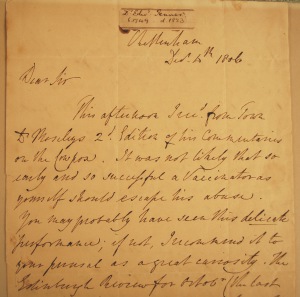 Dr. Edw. Jenner
b 1749 d. 1823
Cheltenham
Decr. 4th 1806
Dear Sir
This afternoon I recd. from Town
Dr Moseleys 2d. Edition of his Commentaries
on the Cowpox. It was not likely that so
early and so succefsful a Vaccinator as
yourself should escape his abuse.
You may probably have seen this delicate
performance; if not, I recommend it to
your perusal as a great curiosity. The
Edinburgh Review for Octobr. (the last